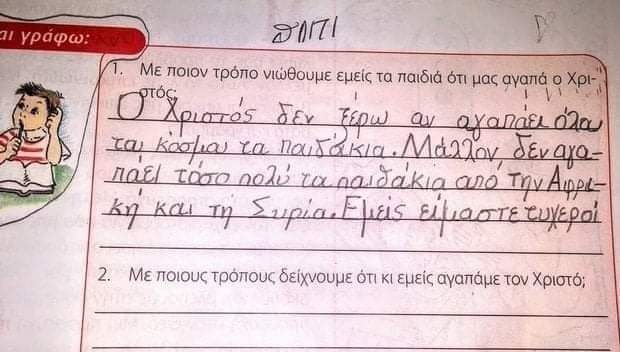 αι γράφω:
1. Με ποιον τρόπο νιώθουμε εμείς τα παιδιά ότι μας αγαπά ο Χρι-
στός;
Ο Χριστός δεν ξέρω αν αγαπάει όλου
του κόσμου τα παιδάκια. Μάλλον, δεν αγα-
πάει τόσο πολύ τα παιδάκια από την Αφρι-
κή και τη Συρία. Εμείς είμαστε τυχεροί
2. Με ποιους τρόπους δείχνουμε ότι κι εμείς αγαπάμε τον Χριστό;